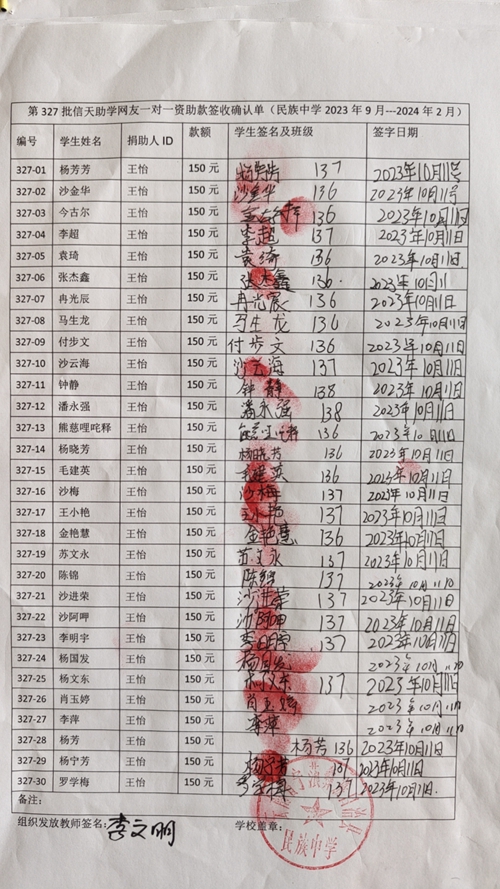 第 327 批信天助学网友一对一资助款签收确认单（民族中学 2023 年 9 月---2024 年 2 月）
编号 学生姓名 捐助人 ID 款额 学生签名及班级 签字日期
327-01 杨芳芳 王怡 150 元 杨芳芳 137 2023年10月11号
327-02 沙金华 王怡 150 元 沙金华 136 2023年10月11号
327-03 今古尔 王怡 150 元 136 2023年10月11日
327-04 李超 王怡 150 元 李超 137 2023年10月11日
327-05 袁琦 王怡 150 元 袁琦 136 2023年10月11日
327-06 张杰鑫 王怡 150 元 张杰鑫 136. 2023年10月11
327-07 冉光辰 王怡 150 元 冉光辰 136 2023年10月11日
327-08 马生龙 王怡 150 元 马生龙 136 2023年10月11日
327-09 付步文 王怡 150 元 付步文 136 2023年10月11日
327-10 沙云海 王怡 150 元 沙云海 137 2023年10月11日
327-11 钟静 王怡 150 元 钟静 138 2023年10月11日
327-12 潘永强 王怡 150 元 潘永强 138 2023年10月11日
327-13 熊慈哩咤释 王怡 150 元 136 2023年10月11日
327-14 杨晓芳 王怡 150 元 杨晓芳 136 2023年10月11日
327-15 毛建英 王怡 150 元 毛建英 136 2023年10月11日
327-16 沙梅 王怡 150 元 沙梅 137 2023年10月11日
327-17 王小艳 王怡 150 元 王小艳 137 2023年10月11日
327-18 金艳慧 王怡 150 元 金艳慧 136 2023年10月11日
327-19 苏文永 王怡 150 元 苏文永 137 2023年10月11日
327-20 陈锦 王怡 150 元 陈锦 137 2023年10月11日
327-21 沙进荣 王怡 150 元 沙进荣 137 2023年10月11日
327-22 沙阿呷 王怡 150 元 沙阿呷 137 2023年10月11日
327-23 李明宇 王怡 150 元 李明宇 137 2023年10月11日
327-24 杨国发 王怡 150 元 杨国发 2023年10月11日
327-25 杨文东 王怡 150 元 杨文东 137 2023年10月11日
327-26 肖玉婷 王怡 150 元 肖玉婷 2023年10月11日
327-27 李萍 王怡 150 元 李萍 2023年10月11日
327-28 杨芳 王怡 150 元 杨芳 136 2023年10月11日
327-29 杨宁芳 王怡 150 元 杨宁芳 137 2023年10月11日
327-30 罗学梅 王怡 150 元 罗学梅 137 2023年10月11日.
备注：
组织发放教师签名： 李文明 学校盖章：
民族中学